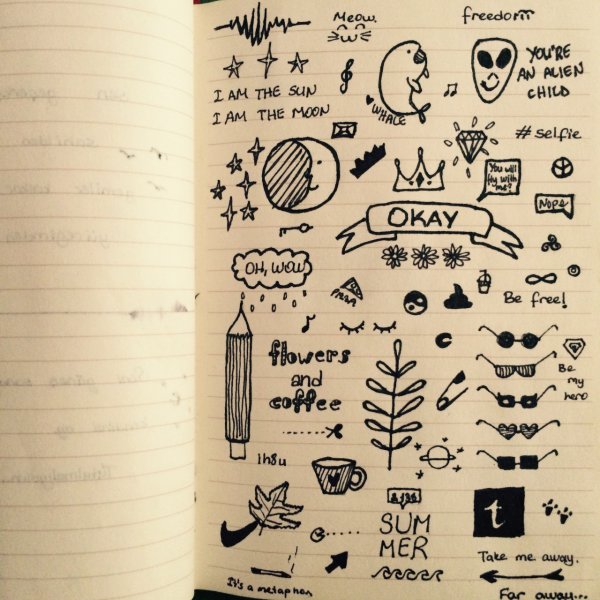 Meow.
freedom
YOU'RE
AN ALIEN
CHILD
I AM THE SUN
I AM THE MOON
WHALE
#selfie
You will
fly with
me?
Nope
OKAY
OH, WOW
PIZZA
Be free!
flowers
and
coffee
Be
my
hero
1h8u
SUM
MER
t
Take me away.
It's a metaphor
Far away...